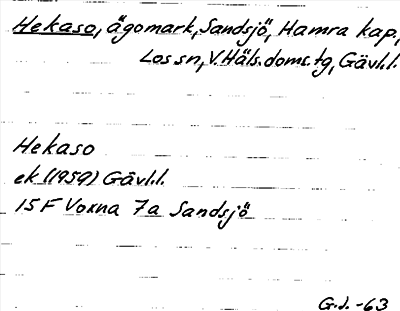 Hekaso, ägomark, Sandsjö, Hamra kap.,
Los sn, V. Häls. doms. tg, Gävl.l.
Hekaso
ek (1959) Gävl.l.
15 F Voxna 7a Sandsjö
G.J. -63